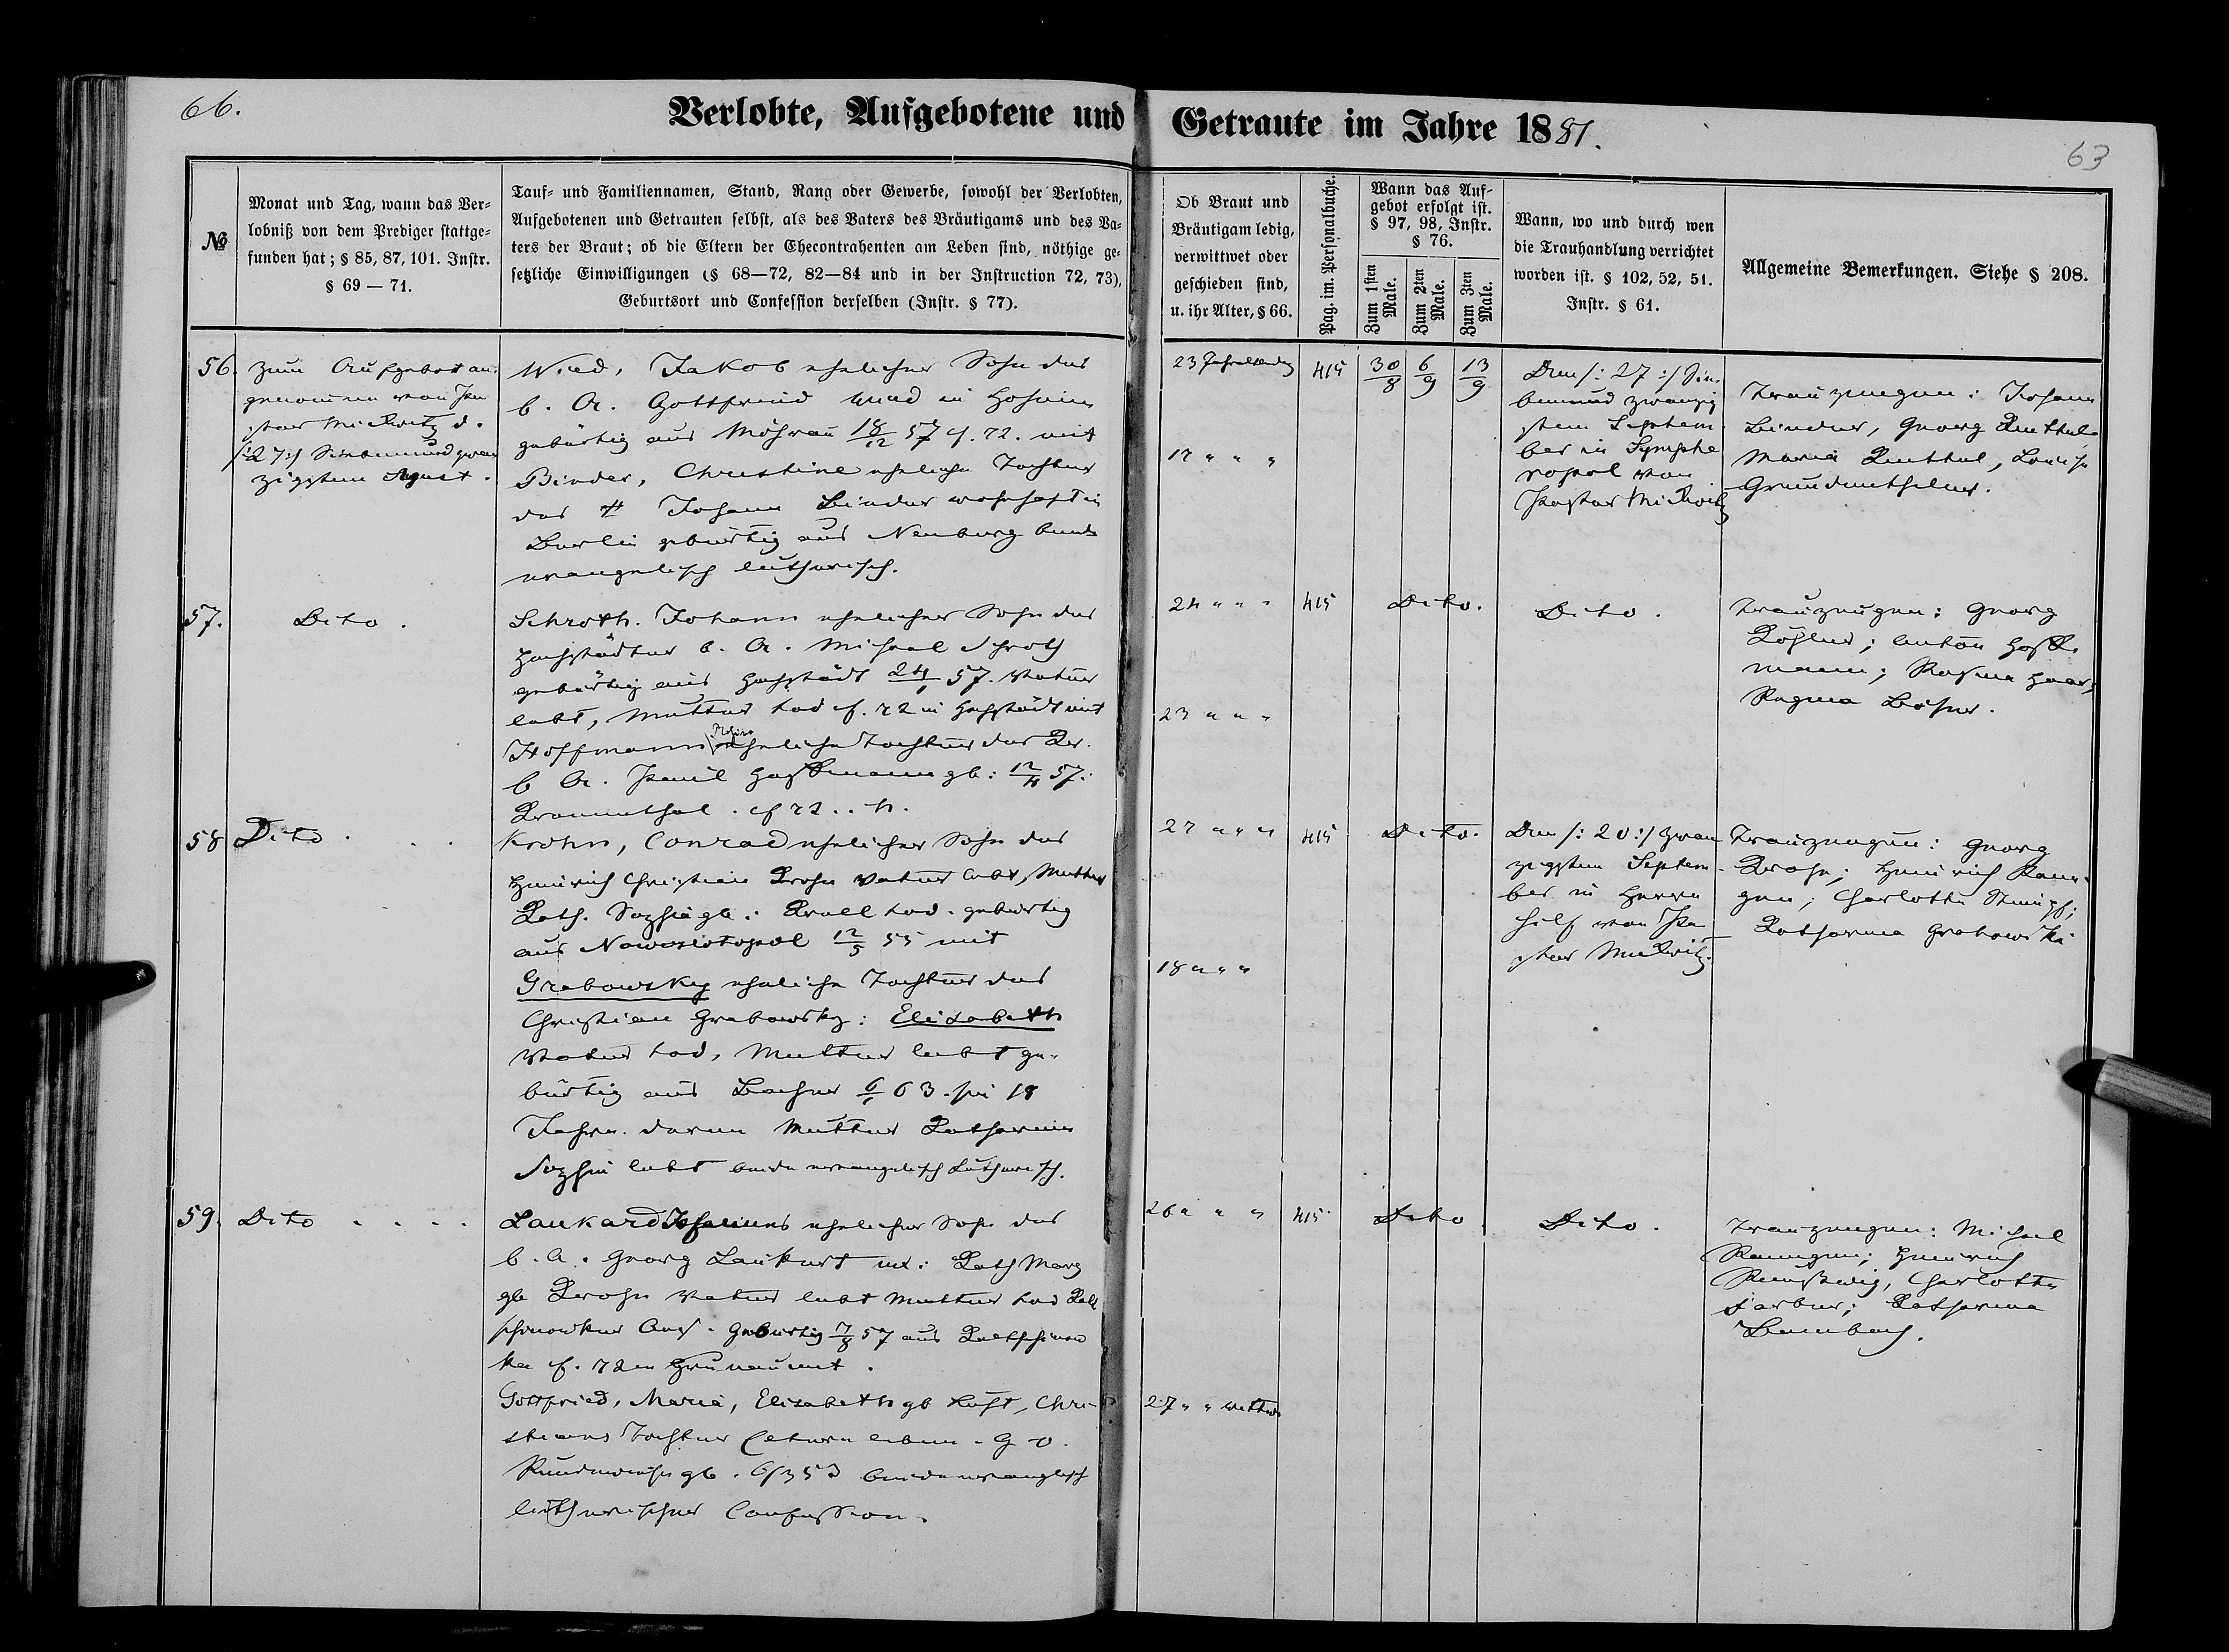 66.
Verlobte, Aufgebotene und Getraute im Jahre 1881.
63
№
Monat und Tag, wann das Ver-
lobniß von dem Prediger stattge-
funden hat; § 85, 87, 101. Instr.
§ 69 — 71.
Tauf- und Familiennamen, Stand, Rang oder Gewerbe, sowohl der Verlobten,
Aufgebotenen und Getrauten selbst, als des Vaters des Bräutigams und des Va-
ters der Braut; ob die Eltern der Ehecontrahenten am Leben sind, nöthige ge-
setzliche Einwilligungen (§ 68—72, 82—84 und in der Instruction 72, 73),
Geburtsort und Confession derselben (Instr. § 77).
Ob Braut und
Bräutigam ledig,
verwittwet oder
geschieden sind,
u. ihr Alter, § 66.
Pag. im. Personalbuche.
Wann das Auf-
gebot erfolgt ist.
§ 97, 98, Instr.
§ 76.
Zum 1sten
Male.
Zum 2ten
Male.
Zum 3ten
Male.
Wann, wo und durch wen
die Trauhandlung verrichtet
worden ist. § 102, 52, 51.
Instr. § 61.
Allgemeine Bemerkungen. Siehe § 208.
56.
zum Aufgebot an-
genommen von Pa-
stor Mickwitz d.
/:27:/ Siebenundzwan
zigsten August.
Wied, Jakob ehelicher Sohn des
b. A. Gottfried Wied in
gebürtig aus 18/12 57 cf. 72. mit
Binder, Christine eheliche Tochter
des # Johann Binder wohnhaft in
Berlin gebürtig aus Neuburg beide
evangelisch lutherisch.
23 Jahr ledig
17 " " "
415
30/8
6/9
13/9
Den /: 27 :/ Sie-
benundzwanzig
sten Septem-
ber in Symphe
ropol von
Pastor Mickwitz
Trauzeugen: Johann
Binder, Georg
Maria , Louise
57.
Dito.
Schroth. Johann ehelicher Sohn des
Hochstädter b. A. Michael Schroth
gebürtig aus Hochstädt 24/1 57. Vater
lebt, Mutter tod cf. 72 in Hochstädt mit
Hoffmann Rosina eheliche Tochter des Kr.
b A. Paul Hoffmann gb: 57.
Kronenthal. cf 72
24 " " "
23 " " "
415
Dito.
Dito.
Trauzeugen: Georg
Köhler; Anton Hoff-
mann; Rosina Haar,
Regina
58
Dito.
Krohn, Conrad ehelicher Sohn des
Heinrich Christian Krohn Vater lebt, Mutter
Kath. Sophia gb.: Kroll tod. gebürtig
aus Nowoslotopol 12/5 55 mit
Grabowsky eheliche Tochter des
Christian Grabowsky: Elisabeth
Vater tod, Mutter lebt ge-
bürtig aus 6/1 63. sei 18
Jahre. deren Mutter Katharina
Sophia lebt beide evangelisch Lutherisch.
27 " " "
18 " " "
415
Dito.
Den /: 20 :/ zwan
zigsten Septem-
ber in Herrn
hilf von Pa
stor Mickwitz.
Trauzeugen: Georg
Krohn; Heinrich
; Charlotte Stumpf;
Katharina Grabowski
59.
Dito
Laukard Johannes ehelicher Sohn des
b. A. Georg Laukart ux: Kath Marg
gb Krohn Vater lebt Mutter tod
Gebürtig 57 aus
ka cf. 72 in Grunau mit.
Gottfried, Maria, Elisabeth gb , Chri-
stians Tochter Eltern leben.
gb. beide evanglisch
lutherischer Confession.
26 " " "
27 " " Wittwe
415
Dito
Dito.
Trauzeugen: Michael
; Heinrich
, Charlotte
Farber; Katharina